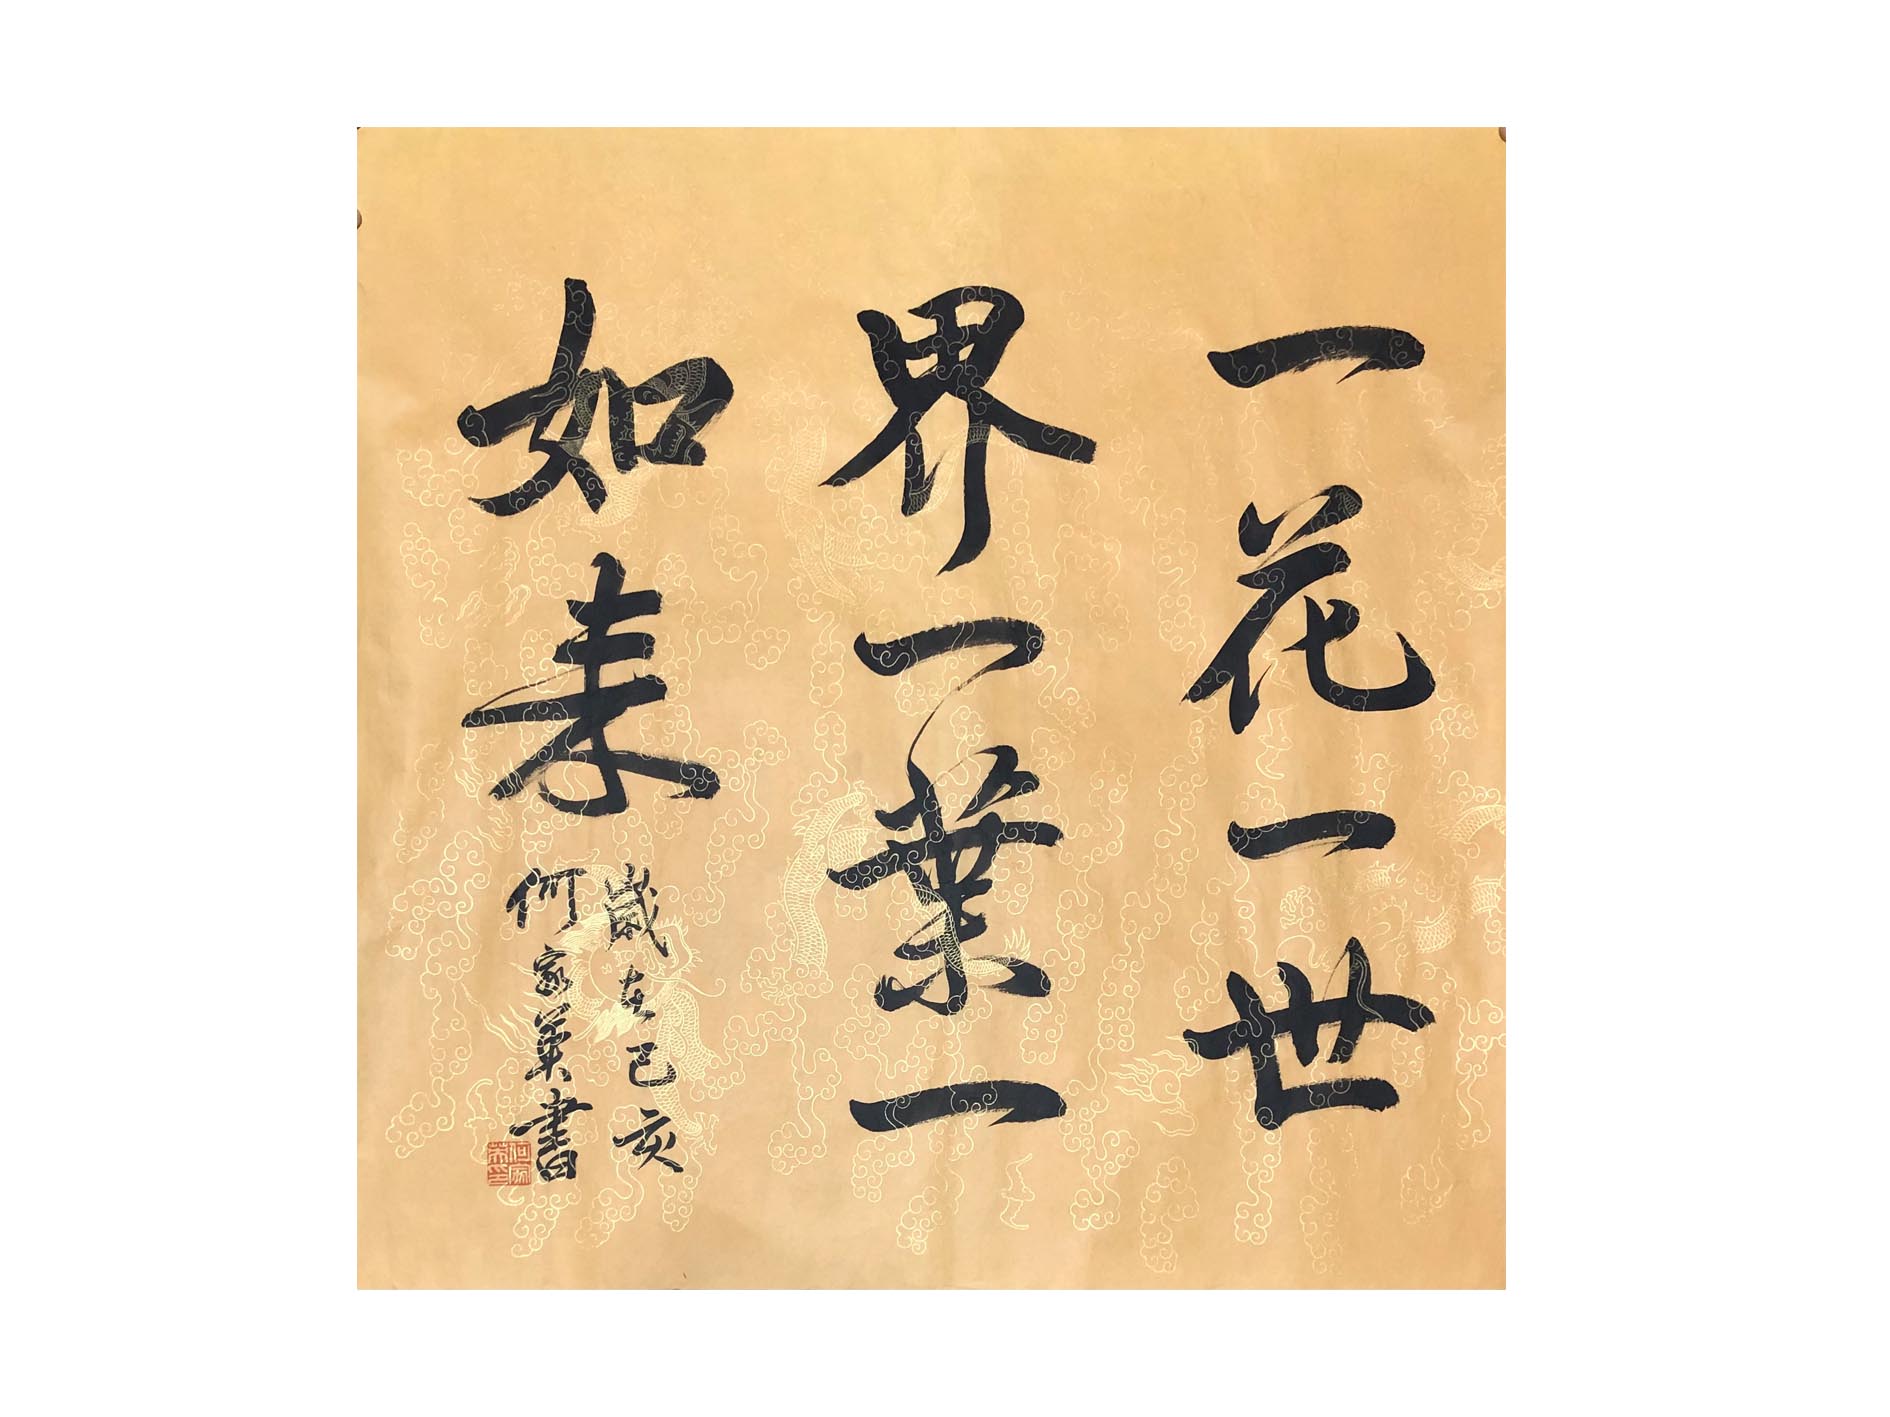 一花一世
界一葉一
如来
歲在己亥
何家英書
何家英印